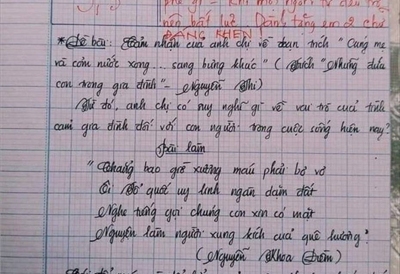 nên bất lực
ĐÁNG KHEN
* Đề bài: Cảm nhận của anh chị về đoạn trích "Cúng mẹ
và cơm nước xong... sang bưng khác" (Trích "Những đứa
con trong gia đình" - Nguyễn Thi)
Từ đó, anh chị có suy nghĩ gì về vai trò của tình
cảm gia đình đối với con người trong cuộc sống hiện nay?
Bài làm
"Chẳng bao giờ xương máu phải bơ vơ
Ôi Tổ quốc uy linh ngàn dặm đất
Nghe tiếng gọi chúng con xin có mặt
Nguyện làm người xung kích của quê hương"
(Nguyễn Khoa Điềm)